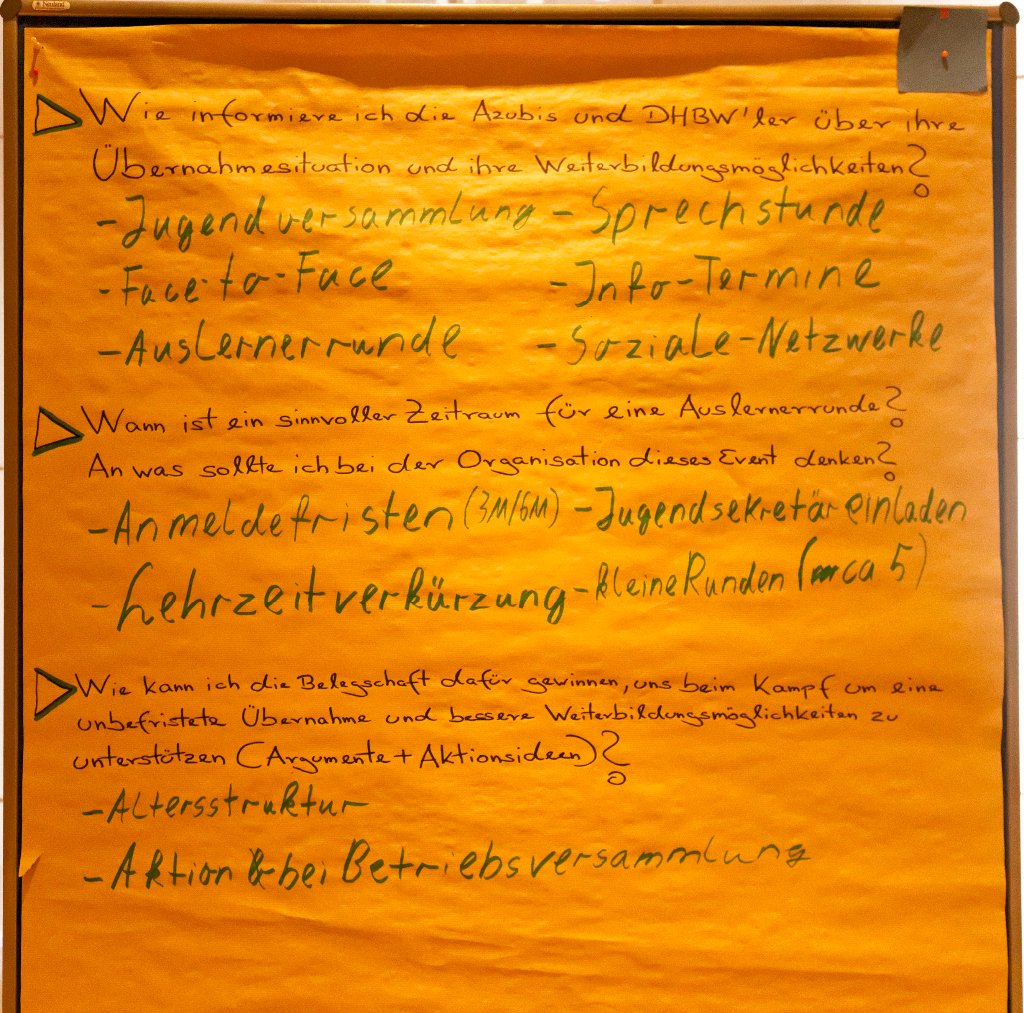 Neuland
Wie informiere ich die Azubis und DHBW'ler über ihre
Übernahmesituation und ihre Weiterbildungsmöglichkeiten?
- Jugendversammlung - Sprechstunde
- Face-to-Face - Info-Termine
- Auslernerrunde - Soziale-Netzwerke
Wann ist ein sinnvoller Zeitraum für eine Auslernerrunde?
An was sollte ich bei der Organisation dieses Event denken?
- Anmeldefristen (3M/6M) - Jugendsekretär einladen
- Lehrzeitverkürzung - kleine Runden (ca 5)
Wie kann ich die Belegschaft dafür gewinnen, uns beim Kampf um eine
unbefristete Übernahme und bessere Weiterbildungsmöglichkeiten zu
unterstützen (Argumente + Aktionsideen)?
- Altersstruktur
- Aktion bei Betriebsversammlung